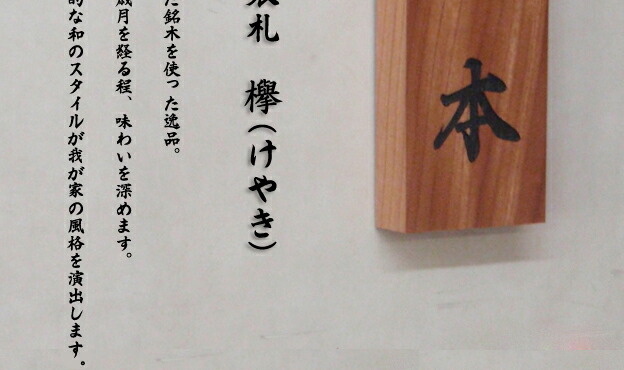 本
札　欅（けやき）
た銘木を使った逸品。
歳月を経る程、味わいを深めます。
的な和のスタイルが我が家の風格を演出します。